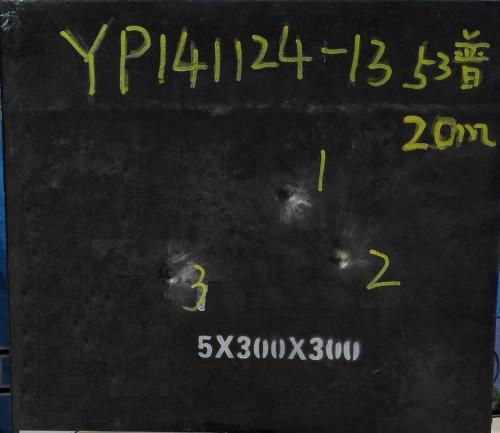 YP141124-13 53普
20m
1
2
3
5X300X300